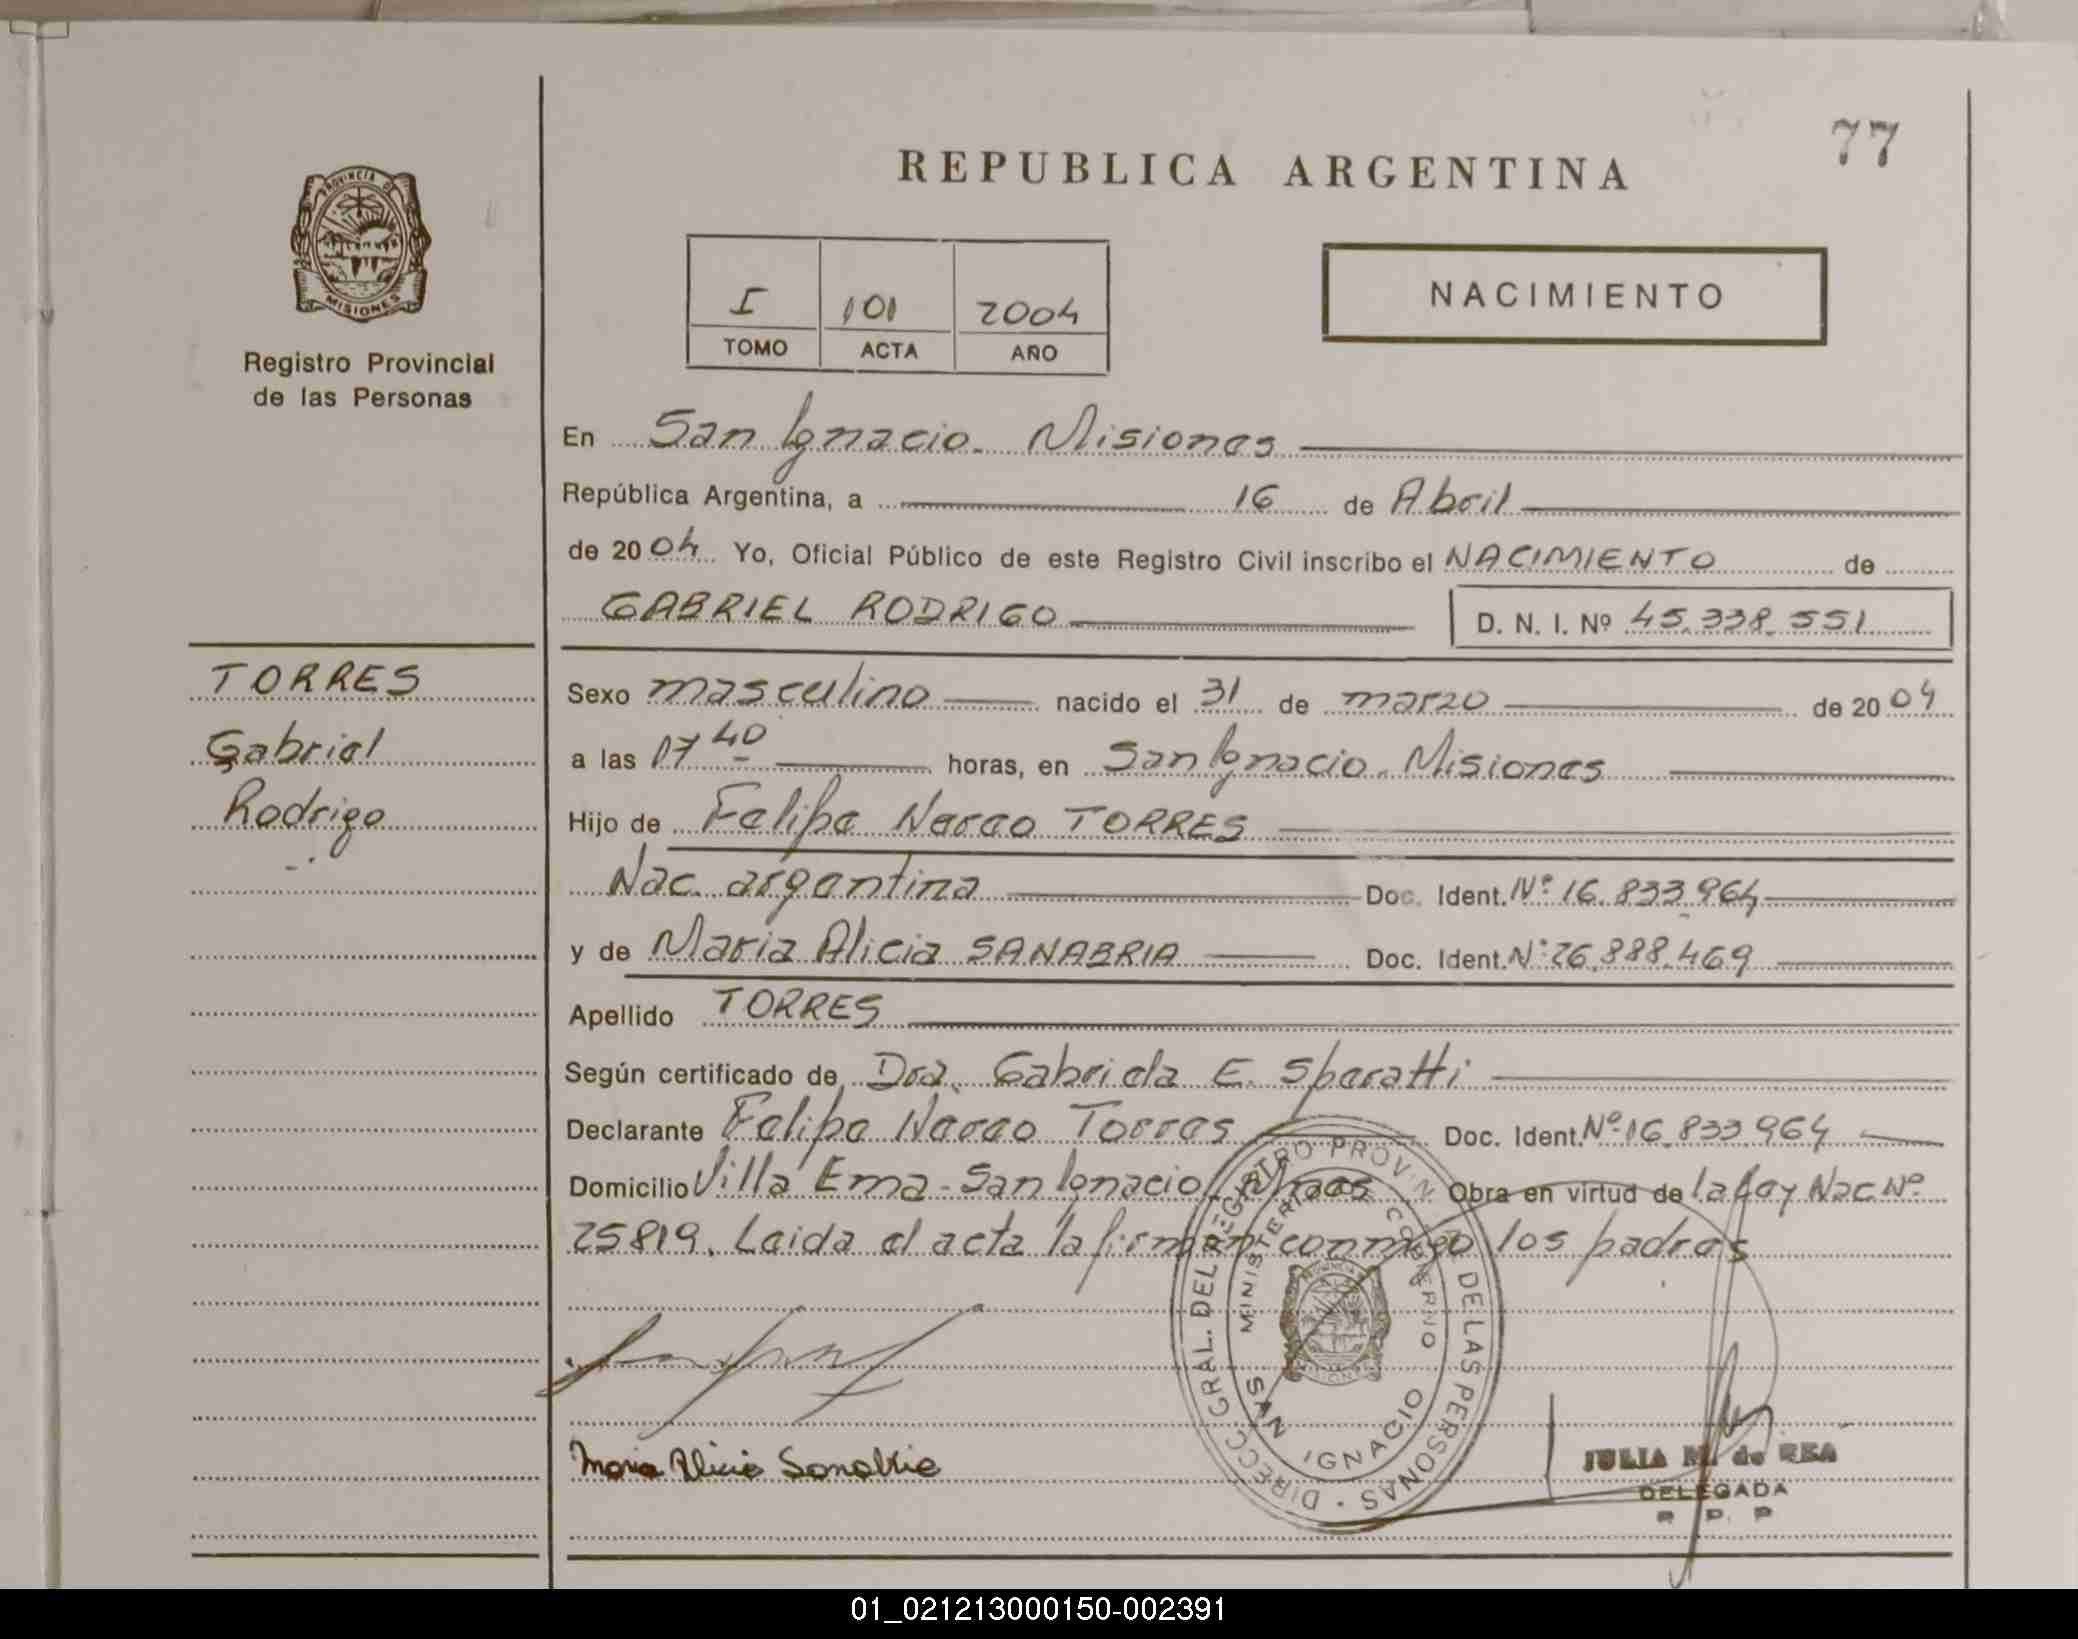 77
REPUBLICA ARGENTINA
PROVINCIA DE
MISIONES
Registro Provincial
de las Personas
I 101 2004
TOMO ACTA AÑO
NACIMIENTO
En San Ignacio - Misiones
República Argentina, a 16 de Abril
de 2004 Yo, Oficial Público de este Registro Civil inscribo el NACIMIENTO de
GABRIEL RODRIGO D. N. I. Nº 45.338.551
TORRES
Gabriel
Rodrigo
Sexo masculino nacido el 31 de marzo de 2004
a las 07 40 horas, en San Ignacio - Misiones
Hijo de Felipe Nereo TORRES
Nac. argentina Doc. Ident. Nº 16.833.964
y de Maria Alicia SANABRIA Doc. Ident. Nº 26.888.469
Apellido TORRES
Según certificado de Dra. Gabriela E. Speratti
Declarante Felipe Nereo Torres Doc. Ident. Nº 16.833.964
Domicilio Villa Ema - San Ignacio, Mnes Obra en virtud de la Ley Nac Nº
25819. Leida el acta la firman conmigo los padres
DIRECC. GRAL. DEL REGISTRO PROVIN. DE LAS PERSONAS
MINISTERIO DE GOBIERNO
SAN IGNACIO
Maria Alicia Sanabria
JULIA M. de REA
DELEGADA
R. P. P.
01_021213000150-002391